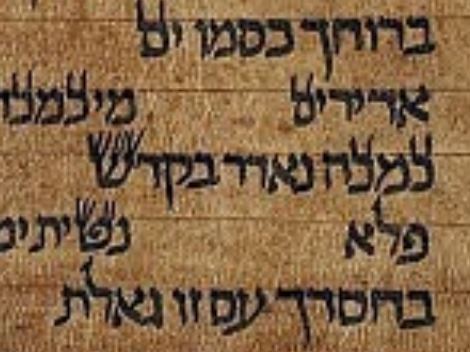 ברוחך כסמו ים
אדירים מי כמכה
כמכה נאדר בקדש
פלא נטית ימ
בחסדך עם זו גאלת